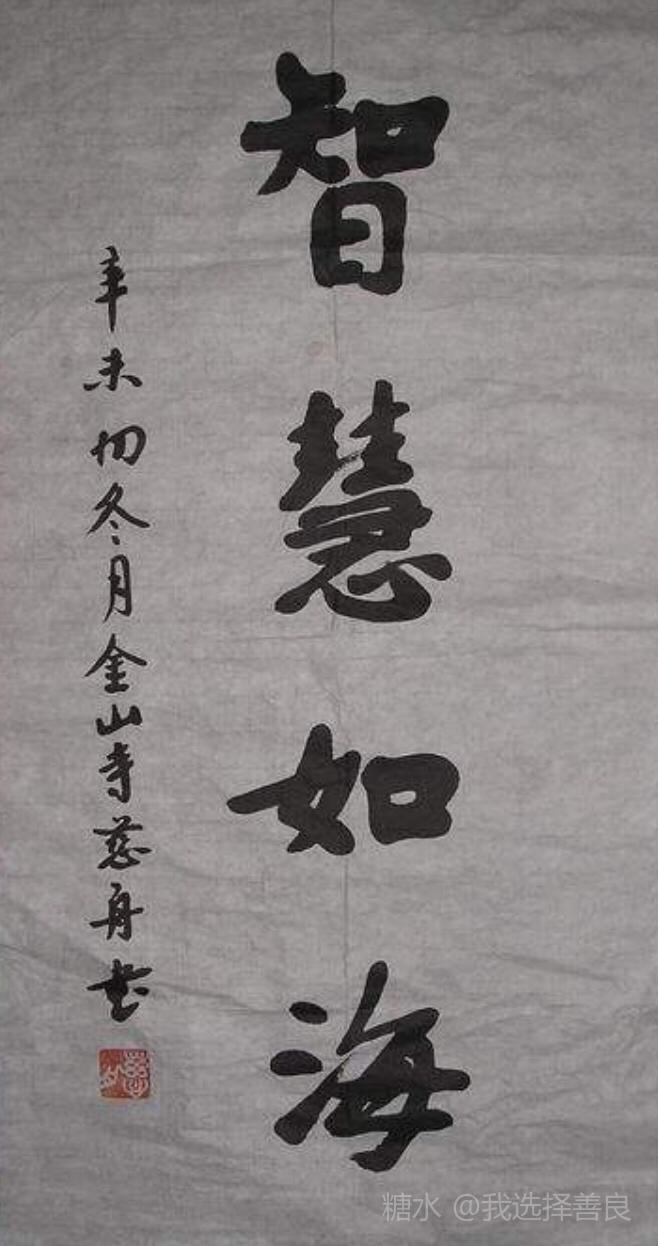 智慧如海
辛未初冬月金山寺慈舟书
慈舟
糖水 @我选择善良